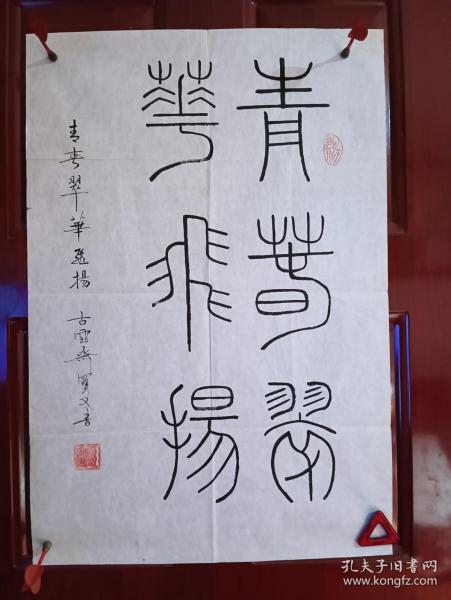 青春翠
華飛揚
青春翠華飛揚 古雪齋罗文书
孔夫子旧书网
www.kongfz.com